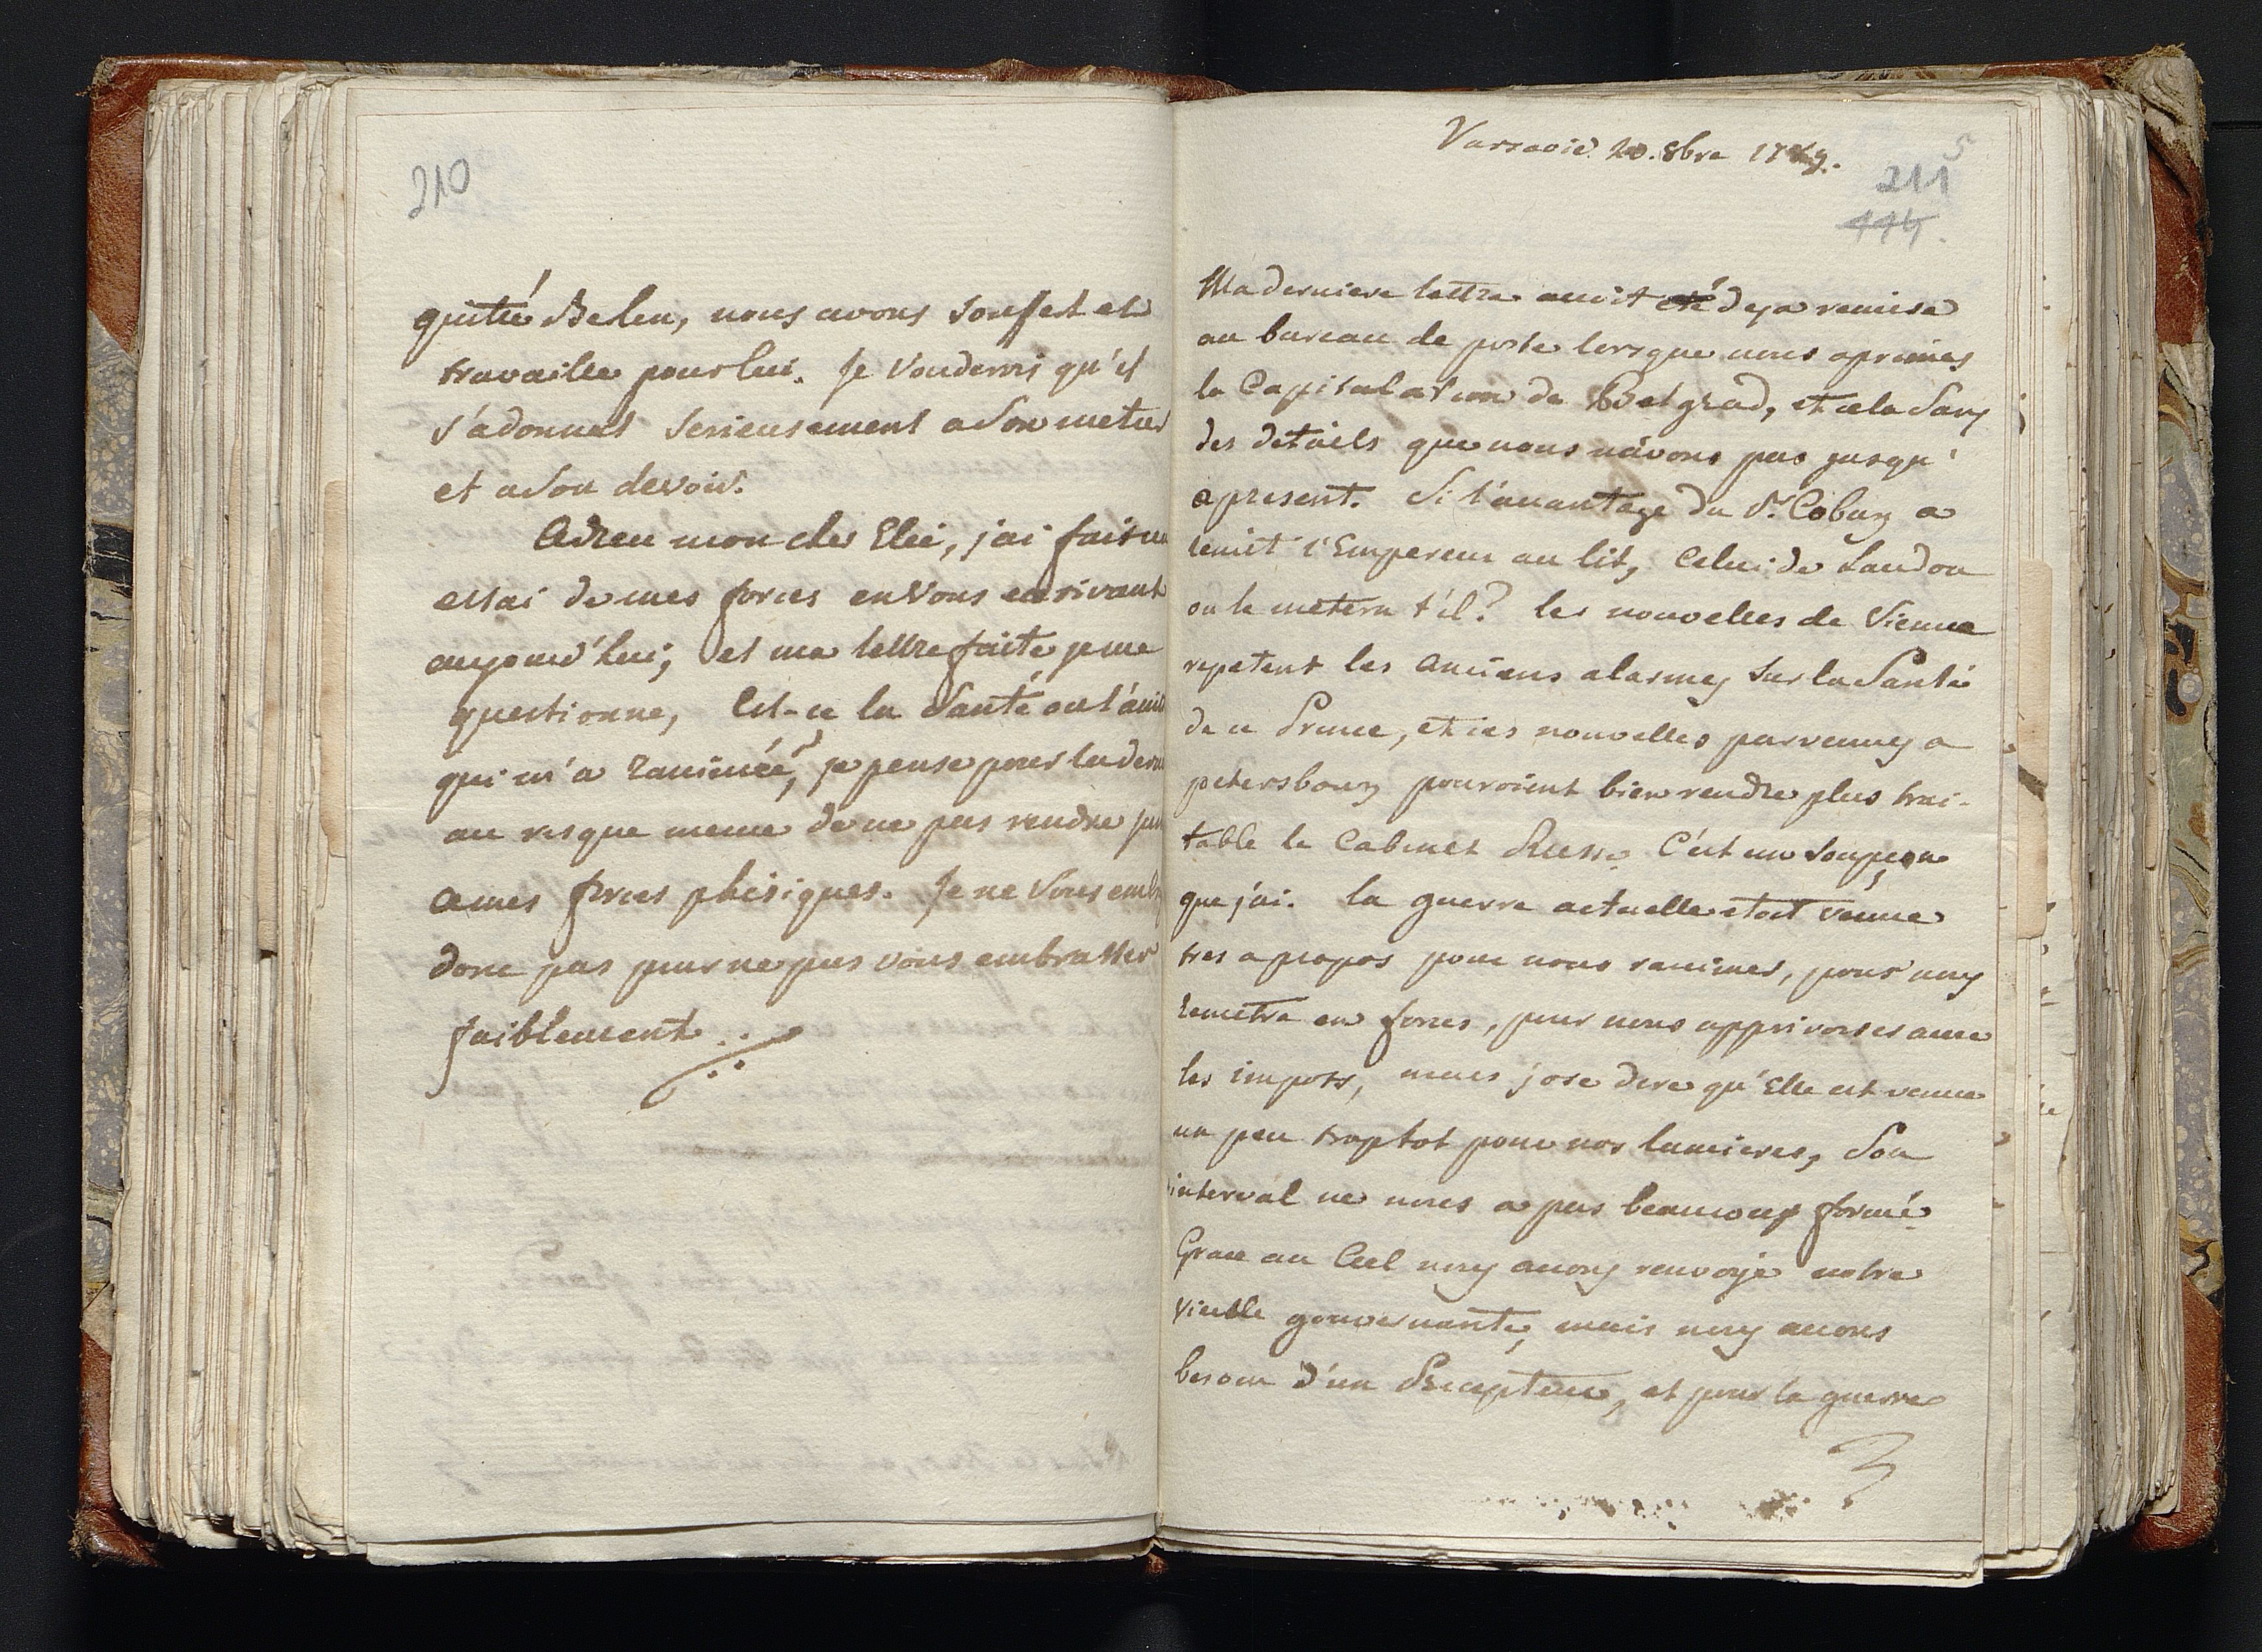 210
quitté Belen, nous avons souffert et
travaille pour lui. Je Vouderois qu'il
s'adonnat serieusement a son metier
et a son devoir.
Adieu mon cher Elie, j'ai fait un
essai de mes forces en Vous ecrivant
aujourd'hui, et ma lettre faite je me
questionne, Est-ce la Santé ou l'ami
qui m'a ranimée, je pense pour la dern
au risque meme de ne pas rendre jus
a mes forces phisiques. Je ne Vous emb
donc pas pour ne pas vous embrasser
faiblement
Varsovie 20. 8bre 1789.
5
211
Ma derniere lettre avoit été deja remise
au bureau de poste lorsque nous aprimes
la Capitulation de Belgrad, et cela sans
des details que nous n'avons pas jusqu'
apresent. Si l'avantage du Pr. Coburg a
l'Empereur au lit, Celui de Laudon
ou le metera t'il? les nouvelles de Vienne
repetent les anciens alarmes sur la Santé
de ce Prince, et ces nouvelles parvenues a
petersbourg pouroient bien rendre plus trai-
table le Cabinet Russe. C'est un soupçon
que j'ai. la guerre actuelle etoit venue
tres apropos pour nous ranimer, pour nous
remetre en forces, pour nous apprivoiser avec
les impots, mais j'ose dire qu'Elle est venue
un peu trop tot pour nos lumieres, Son
interval ne nous a pas beaucoup formé.
Grace au Ciel nous avons renvoyé notre
vieille gouvernante, mais nous avons
besoin d'un Precepteur, et pour la guerre